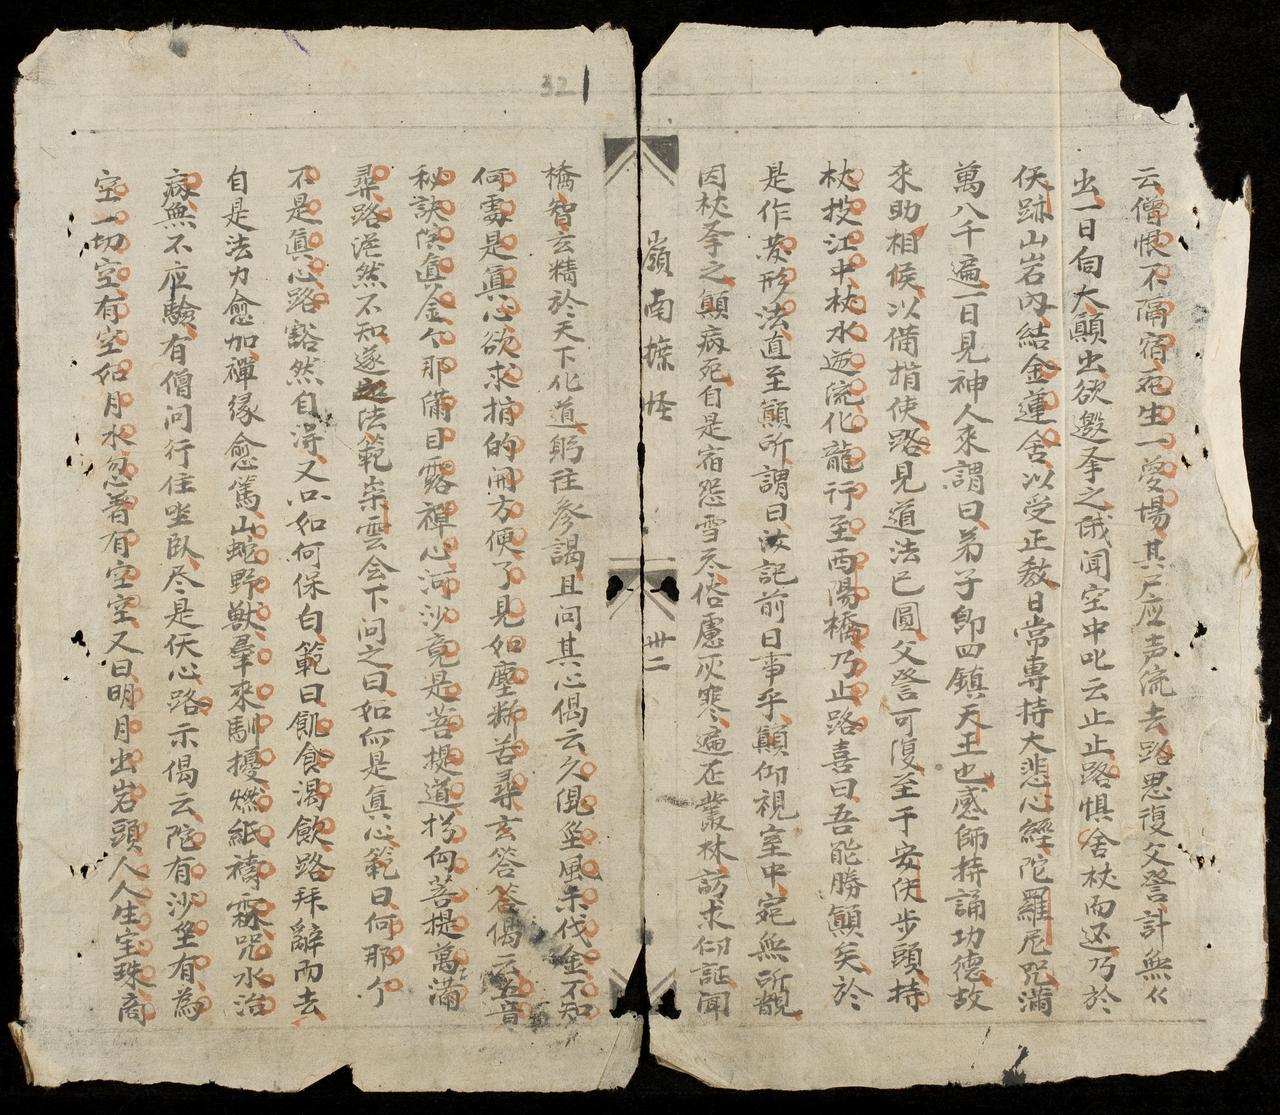 云僧恨不隔宿死生一夢場其尸应声流去路思復父讐計無々
出一日伺大顛出欲邀拳之俄聞空中叱云止止路惧舍杖而还乃於
仸跡山岩內結金蓮舍以受正教日常專持大悲心經陀羅尼咒滿
萬八千遍一日見神人來謂曰弟子卽四鎮天王也感師持誦功德故
來助相候以備指使路見道法已圓父讐可復至于安仸步頭持
杖投江中杖水逆流化龍行至西陽橋乃止路喜曰吾能勝顛矣於
是作茇形法直至顛所謂曰汝記前日事乎顛仰視室中宛無所覩
因杖拳之顛病死自是宿怨雪尽俗慮灰寒遍在叢林訪求仰証聞
嶺南摭怪
卅二
32
橋智玄精於天下化道躬往參謁且问其心偈云久混坐風未伐金不知
何處是真心欲求指的開方便了見如塵断苦尋玄答答偈云五音
秘訣演真金个那備目露禪心河沙竟是菩提道拐向菩提萬滿
尋路茫然不知遂法範崇雲会下问之曰如何是真心範曰何那个
不是真心路豁然自得又问如何保白範曰飢食渴飲路拜辭而去
自是法力愈加禪缘愈篤山蛇野獸羣來馴擾燃紙禱霖咒水治
病無不应驗有僧问行住坐臥尽是仸心路示偈云陀有沙坐有為
空一切空有空如月水忽著有空空又曰明月出岩頭人人生宝珠商